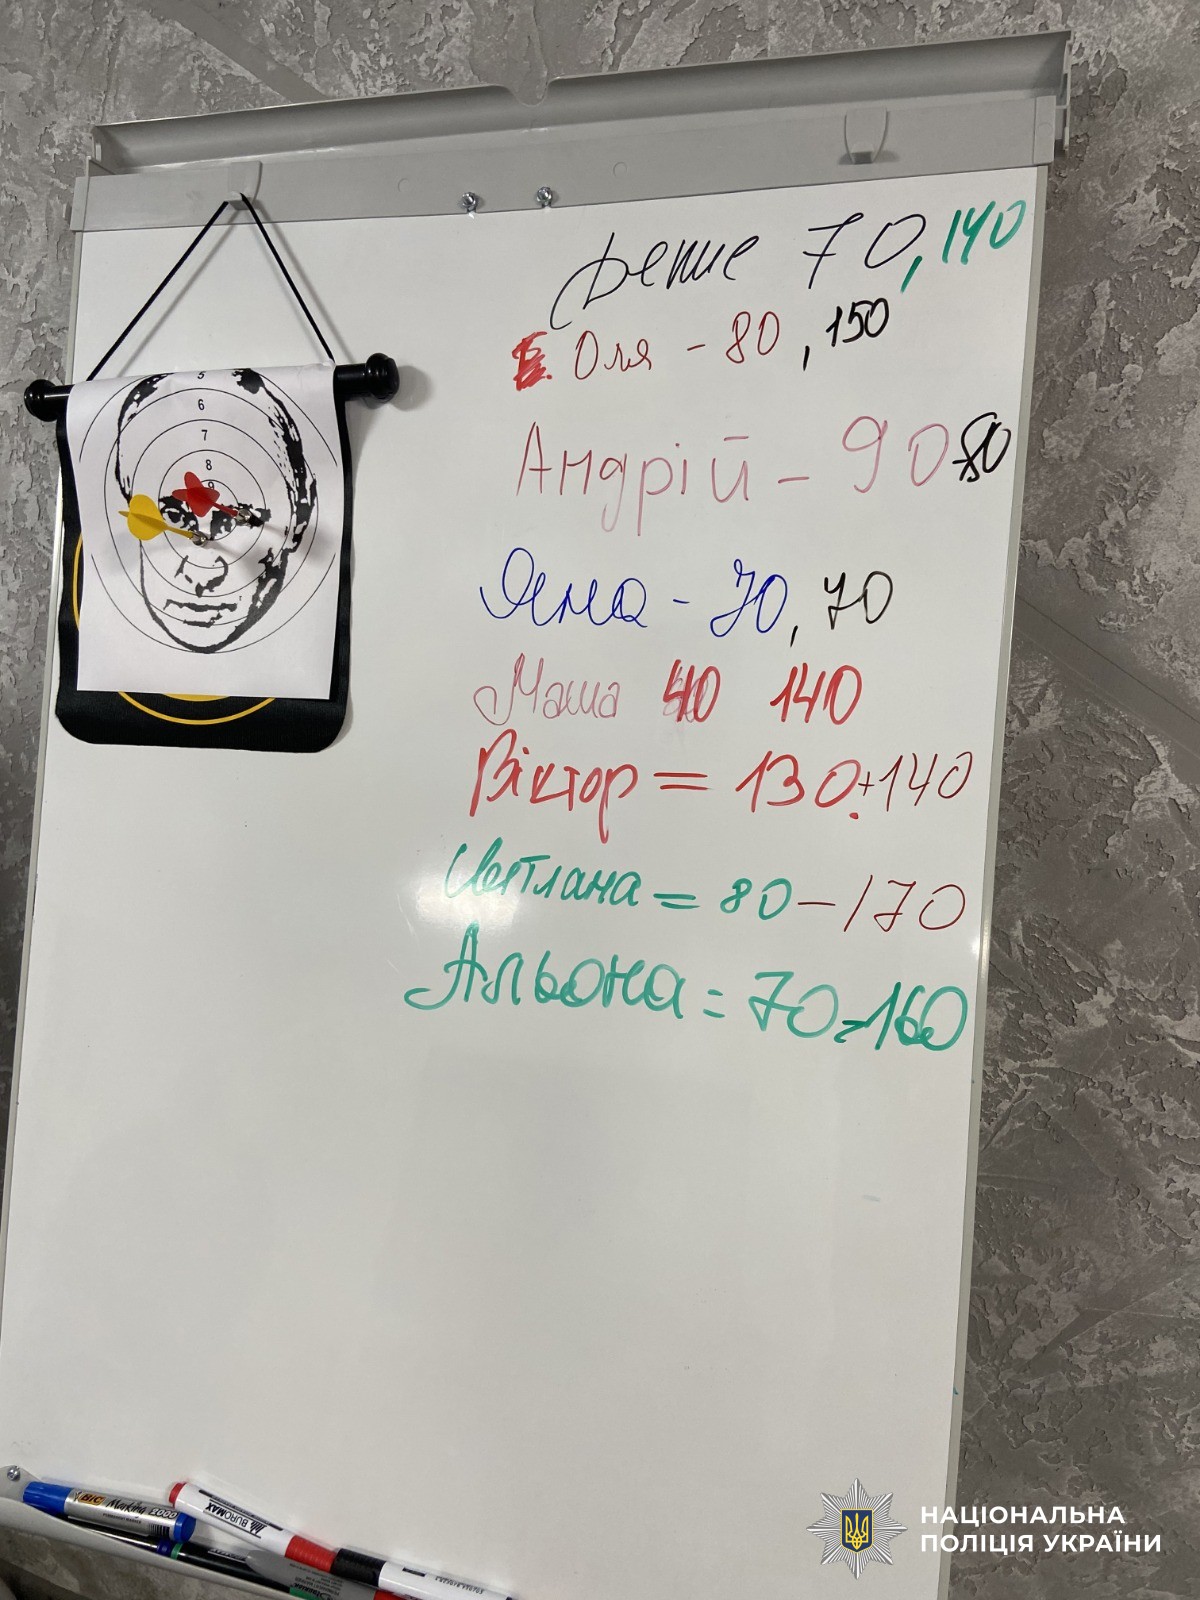 70, 140
Оля - 80, 150
Андрій - 90 80
Яна - 70, 70
Маша 40 140
Віктор = 130. + 140
Світлана = 80 - 170
Альона = 70 - 160
5
6
7
8
9
BIC Marking
BUROMAX
НАЦІОНАЛЬНА
ПОЛІЦІЯ УКРАЇНИ